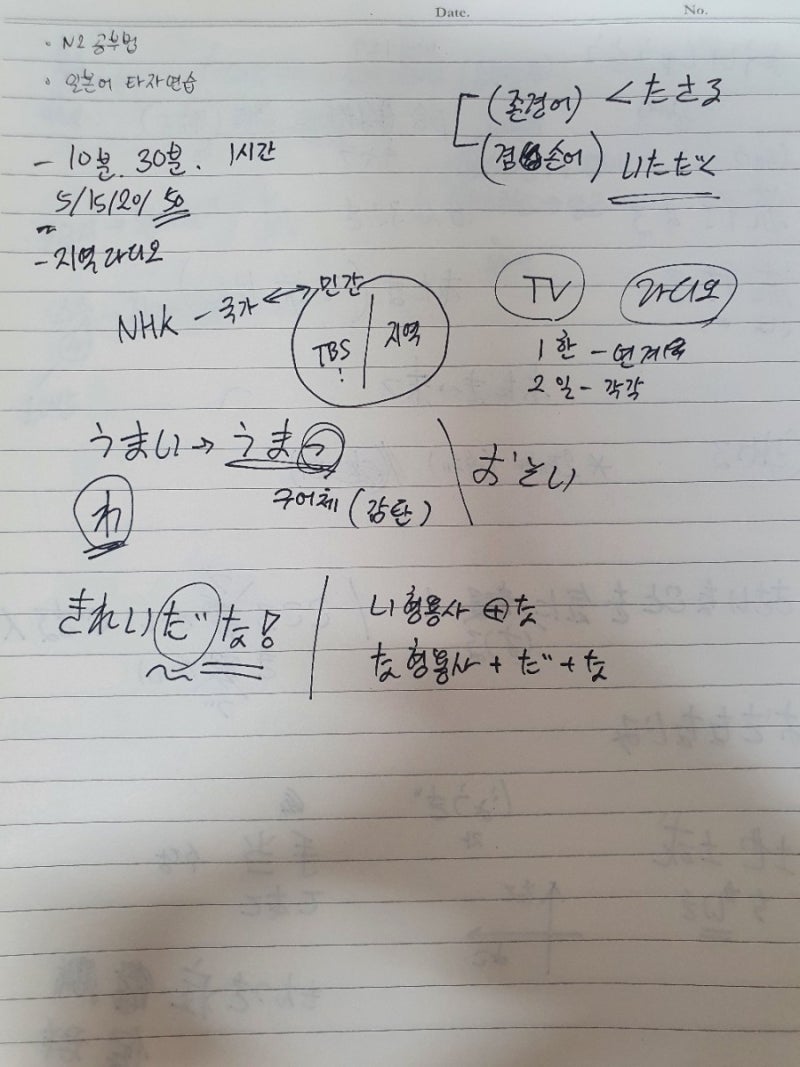 Date.
No.
• N2 공부법
• 일본어 타자연습
(존경어) くださる
(겸손어) いただく
- 10분. 30분. 1시간
5/15/20/50
- 지역라디오
NHK - 국가 ↔ 민간
TBS
지역
TV
라디오
1 한 - 연계
2 일 - 각각
うまい → うまっ
구어체 (감탄)
おそい
わ
きれいだな!
い형용사 ⊕ な
な형용사 + だ + な